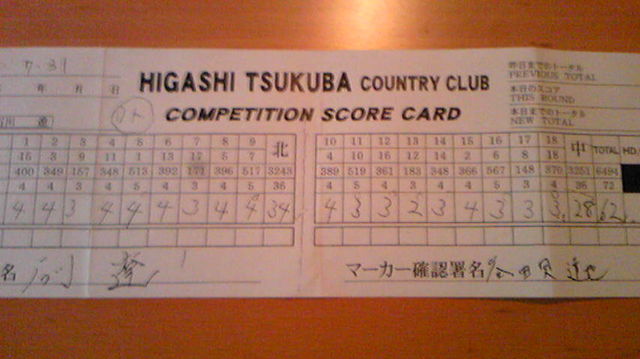 7.31
年 月 日
HIGASHI TSUKUBA COUNTRY CLUB
COMPETITION SCORE CARD
昨日までのトータル
PREVIOUS TOTAL
本日のスコア
THIS ROUND
本日までのトータル
NEW TOTAL
1 2 3 4 5 6 7 8 9 北 10 11 12 13 14 15 16 17 18 中 TOTAL HD.
15 3 9 11 1 13 17 5 7 4 10 16 12 14 2 6 8 18
400 349 157 348 513 392 171 396 517 3243 389 519 361 183 348 366 567 148 370 3251 6494
4 4 3 4 5 4 3 4 5 36 4 5 4 3 4 4 5 3 4 36 72
4 4 3 4 4 4 3 4 4 34 4 3 3 2 3 4 3 3 3 28 62
名
マーカー確認署名